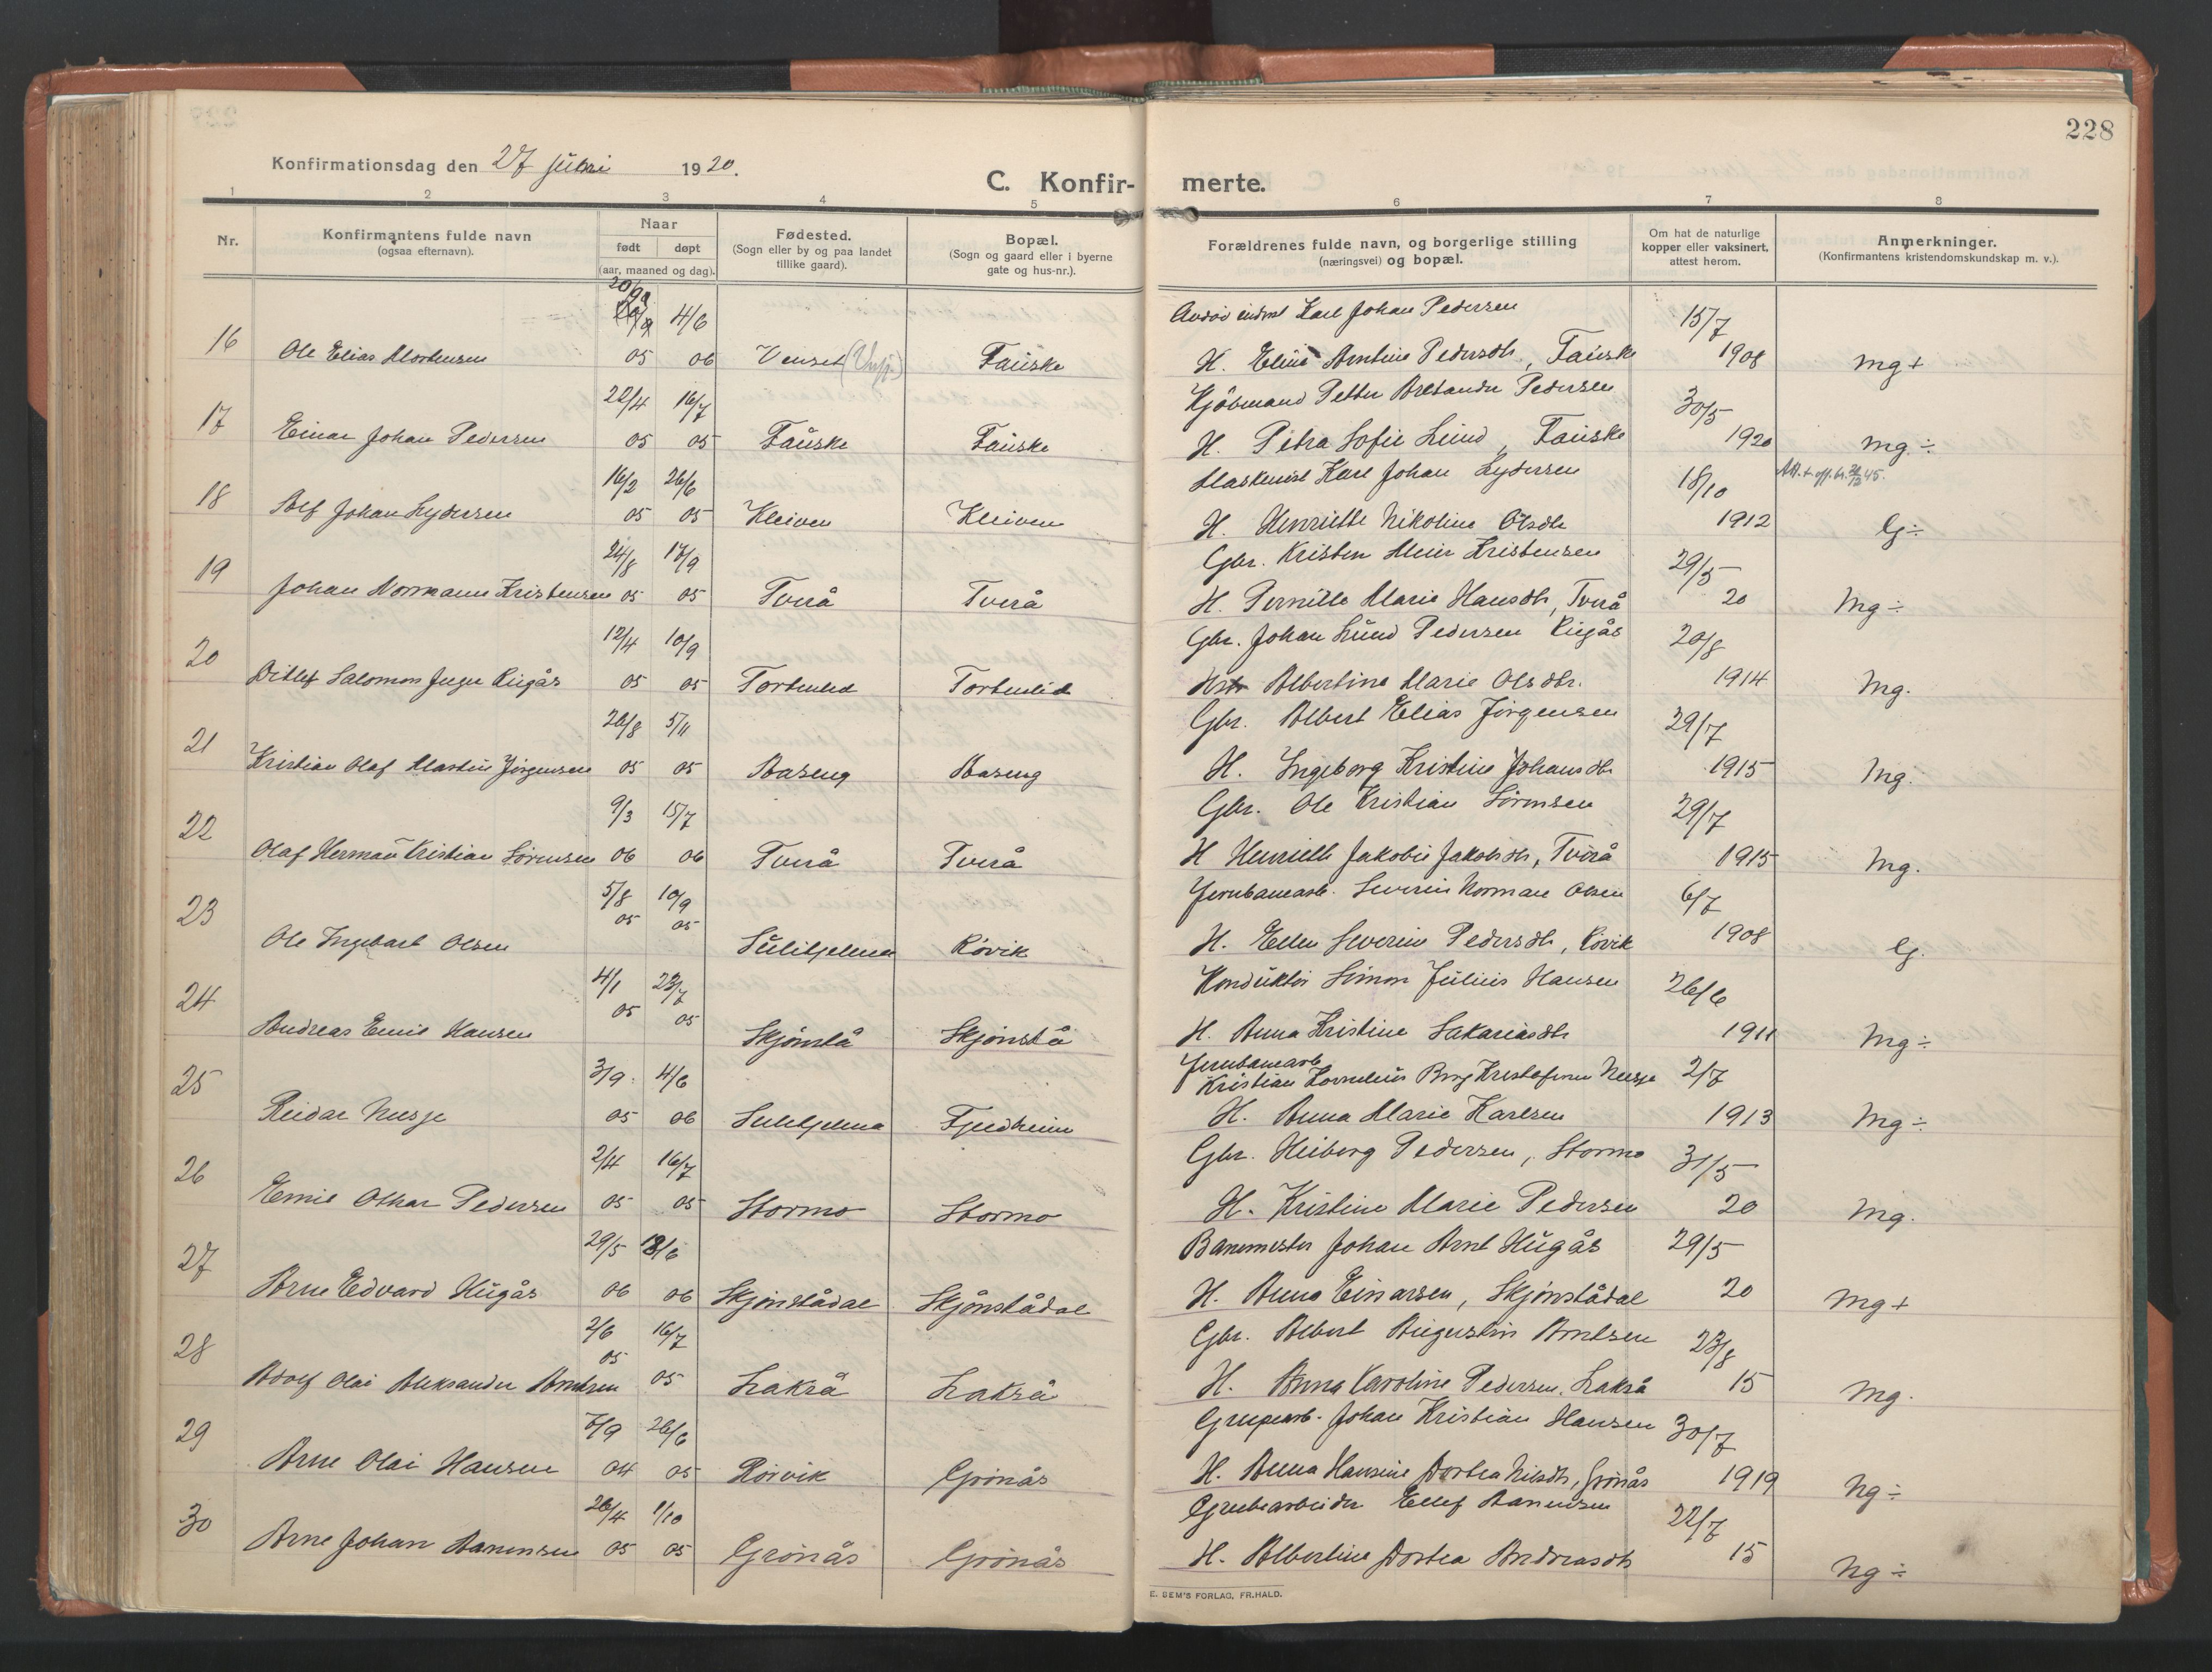 228
Konfirmationsdag den 27 juni 1920.
C. Konfir- merte.
1 2 3 4 5 6 7 8
Nr.
Konfirmantens fulde navn
(ogsaa efternavn).
Naar
født døpt
(aar, maaned og dag).
Fødested.
(Sogn eller by og paa landet
tillike gaard).
Bopæl.
(Sogn og gaard eller i byerne
gate og hus-nr.).
Forældrenes fulde navn, og borgerlige stilling
(næringsvei) og bopæl.
Om hat de naturlige
kopper eller vaksinert,
attest herom.
Anmerkninger.
(Konfirmantens kristendomskundskap m. v.).
20/9 4/6 Karl Johan Pedersen 15/7
16 Ole Elias Mortensen 05 06 Venset Fauske H. Eline Arntine Pedersdtr, Fauske 1908 Mg +
22/4 16/7 Kjøbmand Petter Pedersen 30/5
17 Einar Johan Pedersen 05 05 Fauske Fauske H. Petra Sofie Lund, Fauske 1920 Mg ÷
16/2 26/6 Maskinist Karl Johan Lydersen 18/10
18 Alf Johan Lydersen 05 05 Kleiven Kleiven H. Henriette Nikoline Olsdtr 1912 G ÷
24/8 17/9 Gbr. Kristen Meier Kristensen 29/5
19 Johan Normann Kristensen 05 05 Tverå Tverå H. Pernille Marie Hansdtr, Tverå 20 Mg ÷
12/4 10/9 Gbr. Johan Lund Pedersen Rugås 20/8
20 Ditlef Salomon Rugås 05 05 Tortenlid Tortenlid Albertine Marie Olsdtr. 1914 Mg.
26/8 5/11 Gbr. Albert Elias Jørgensen 29/7
21 Kristian Olaf Martin Jørgensen 05 05 Aaseng Aaseng H. Ingeborg Kristine Johansdtr 1915 Mg.
9/3 15/7 Gbr. Ole Kristian Sørensen 29/7
22 Olaf Herman Kristian Sørensen 06 06 Tverå Tverå H Henriette Jakobie Jakobsdtr, Tverå 1915 Mg.
5/8 10/9 Jernbanearb. Severin Norman Olsen 6/7
23 Ole Ingebart Olsen 05 05 Sulitjelma Røvik H. Ellen Severine Pedersdtr, Røvik 1908 G.
4/1 23/7 Konduktør Simon Julius Hansen 26/6
24 Andreas Emil Hansen 05 05 Skjønstå Skjønstå H. Anna Kristine Sakariasdtr 1911 Mg ÷
3/9 4/6 Jernbanearb. Kristian Kornelius Kristofersen Nesje 2/7
25 Reidar Nesje 05 06 Sulitjelma Fjeldheim H. Anna Marie Karlsen 1913 Mg ÷
2/4 16/7 Gbr. Heiberg Pedersen, Stormo 31/5
26 Emil Othar Pedersen 05 05 Stormo Stormo H. Kristine Marie Pedersen 20 Mg.
29/5 18/6 Banemester Johan Arnt Hugås 29/5
27 Arne Edvard Hugås 06 06 Skjønstådal Skjønstådal H. Anna Einarsen, Skjønstådal 20 Mg +
2/6 16/7 Gbr. Albert Augustin Arntsen 23/8
28 Adolf Olai Aleksander Arntsen 05 05 Lakså Lakså H. Anna Karoline Pedersen, Lakså 15 Mg.
7/9 26/6 Johan Kristian Hansen 30/7
29 Arne Olai Hansen 04 05 Rørvik Grønås H. Anna Hansine Dortea Nilsdtr, Grønås 1919 Ng ÷
26/4 1/10 Grubearbeider Ellef Aanensen 22/7
30 Arne Johan Aanensen 05 05 Grønås Grønås H. Albertine Dortea Andreasdtr 15 Ng ÷
E. SEM'S FORLAG, FR.HALD.